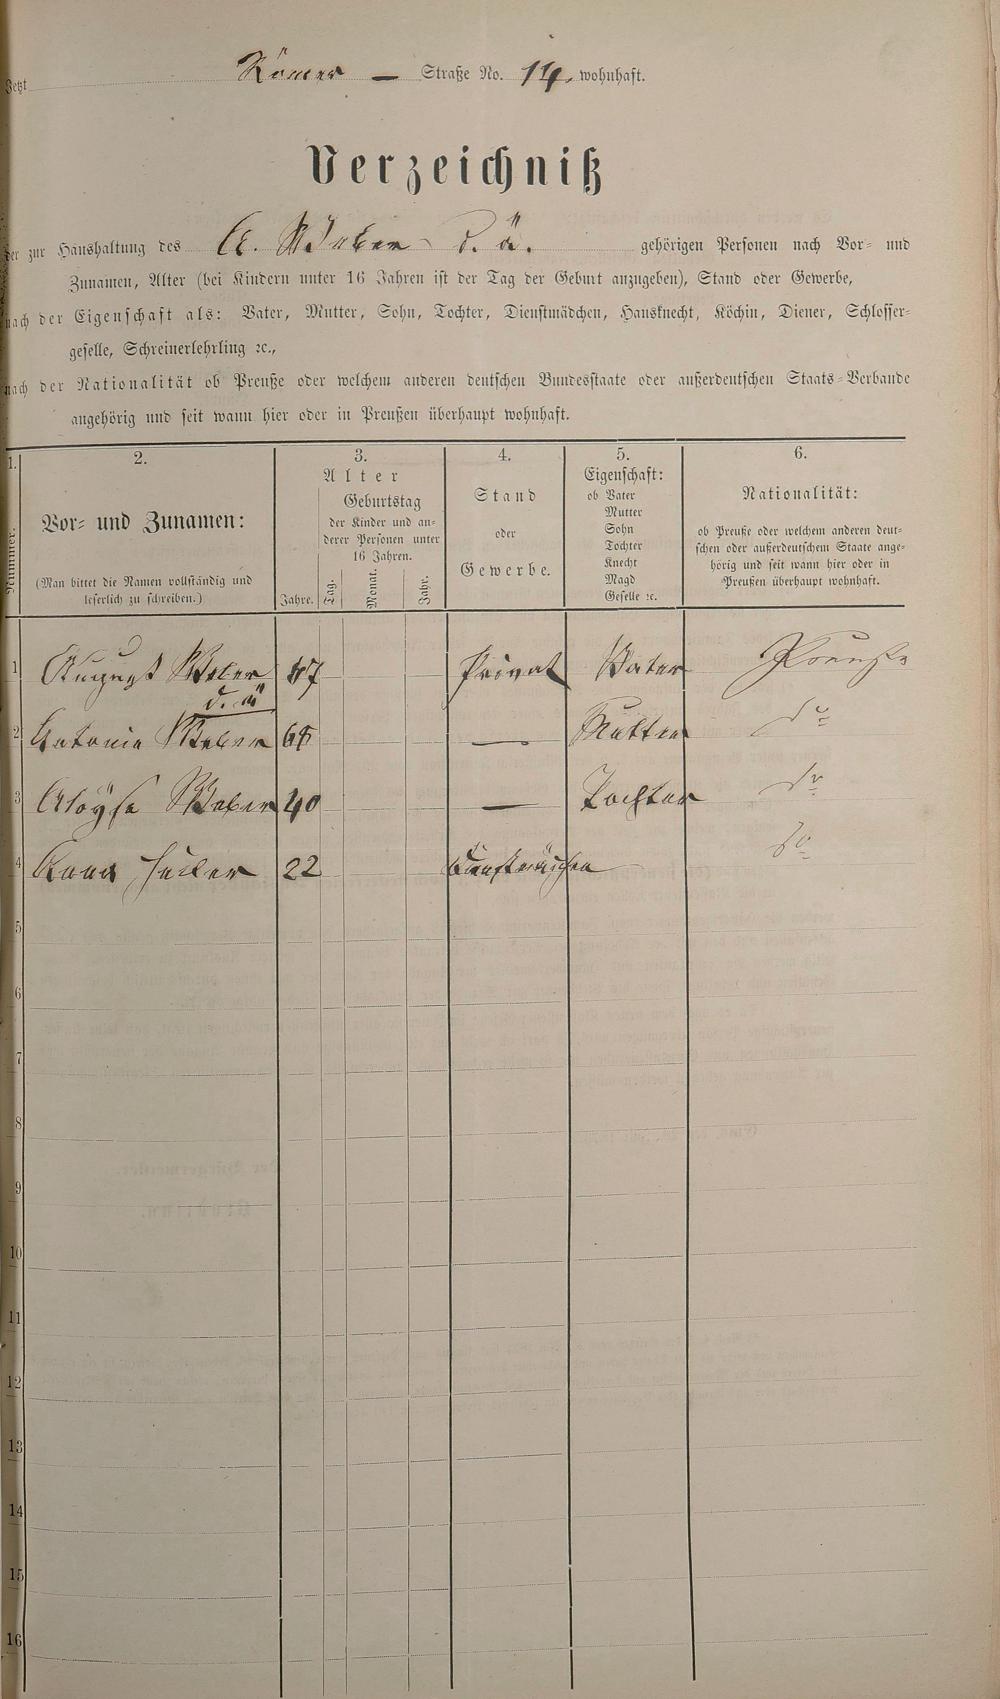 Jetzt Römer — Straße No. 14. wohnhaft.
Verzeichniß
der zur Haushaltung des A. Weber d. ä. gehörigen Personen nach Vor- und
Zunamen, Alter (bei Kindern unter 16 Jahren ist der Tag der Geburt anzugeben), Stand oder Gewerbe,
nach der Eigenschaft als: Vater, Mutter, Sohn, Tochter, Dienstmädchen, Hausknecht, Köchin, Diener, Schlosser-
geselle, Schreinerlehrling ꝛc.,
nach der Nationalität ob Preuße oder welchem anderen deutschen Bundesstaate oder außerdeutschen Staats-Verbande
angehörig und seit wann hier oder in Preußen überhaupt wohnhaft.
1.
Nummer.
2.
Vor- und Zunamen:
(Man bittet die Namen vollständig und
leserlich zu schreiben.)
3.
Alter
Jahre.
Geburtstag
der Kinder und an-
derer Personen unter
16 Jahren.
Tag. Monat. Jahr.
4.
Stand
oder
Gewerbe.
5.
Eigenschaft:
ob Vater
Mutter
Sohn
Tochter
Knecht
Magd
Geselle ꝛc.
6.
Nationalität:
ob Preuße oder welchem anderen deut-
schen oder außerdeutschem Staate ange-
hörig und seit wann hier oder in
Preußen überhaupt wohnhaft.
1 August Weber Privat Vater Preuße
d. ä
2 Antonia Weber — Mutter do
3 Aloyse Weber 40 — Tochter do
4 Anna 22 do
5
6
7
8
9
10
11
12
13
14
15
16